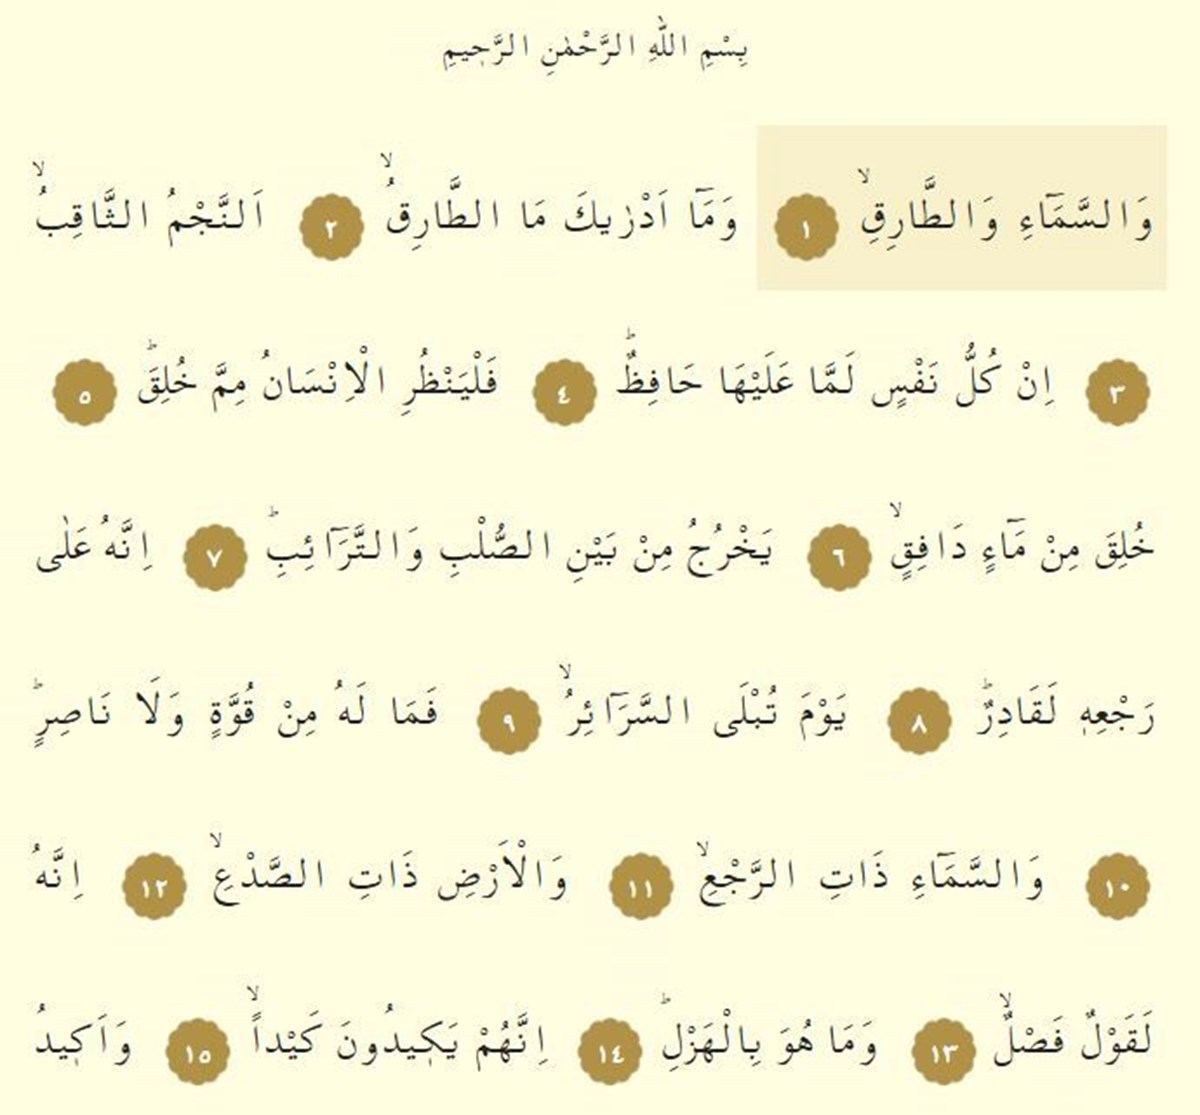 بِسْمِ اللّٰهِ الرَّحْمٰنِ الرَّح۪يمِ
وَالسَّمَٓاءِ وَالطَّارِقِۙ ١ وَمَٓا اَدْرٰيكَ مَا الطَّارِقُۙ ٢ اَلنَّجْمُ الثَّاقِبُۙ
٣ اِنْ كُلُّ نَفْسٍ لَمَّا عَلَيْهَا حَافِظٌۜ ٤ فَلْيَنْظُرِ الْاِنْسَانُ مِمَّ خُلِقَۜ ٥
خُلِقَ مِنْ مَٓاءٍ دَافِقٍۙ ٦ يَخْرُجُ مِنْ بَيْنِ الصُّلْبِ وَالتَّرَٓائِبِۜ ٧ اِنَّهُ عَلٰى
رَجْعِه۪ لَقَادِرٌۜ ٨ يَوْمَ تُبْلَى السَّرَٓائِرُۙ ٩ فَمَا لَهُ مِنْ قُوَّةٍ وَلَا نَاصِرٍۜ
١٠ وَالسَّمَٓاءِ ذَاتِ الرَّجْعِۙ ١١ وَالْاَرْضِ ذَاتِ الصَّدْعِۙ ١٢ اِنَّهُ
لَقَوْلٌ فَصْلٌۙ ١٣ وَمَا هُوَ بِالْهَزْلِۜ ١٤ اِنَّهُمْ يَك۪يدُونَ كَيْداًۙ ١٥ وَاَك۪يدُ